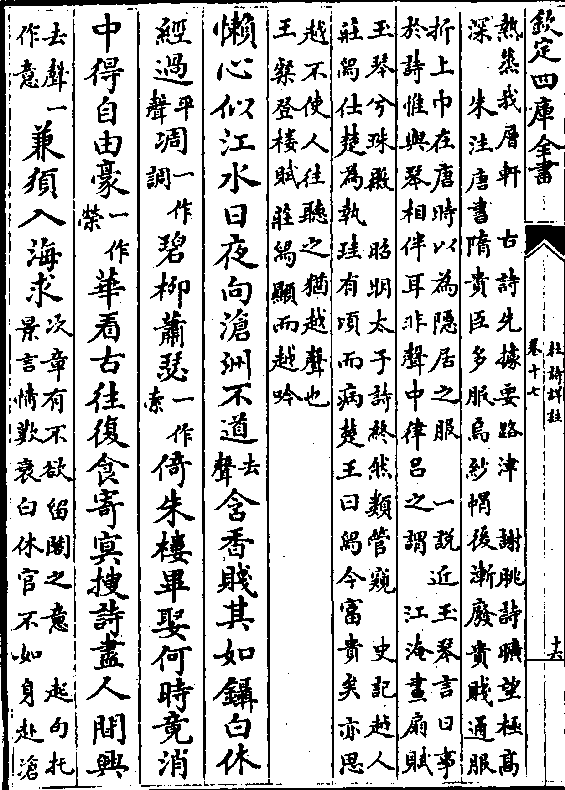 欽定四庫全書
杜詩詳註
卷十七
十六
熱蒸我層軒 古詩先據要路津 謝朓詩曠望極高
深 朱注唐書隋貴臣多服烏紗帽後漸廢貴賤通服
折上巾在唐時以為隱居之服 一說近玉琴言日事
於詩惟與琴相伴耳非聲中律呂之謂 江淹畫扇賦
玉琴兮珠徽 昭明太子詩終然類管窺 史記越人
莊舄仕楚為執珪有頃而病楚王曰舄今富貴矣亦思
越不使人往聽之猶越聲也
王粲登樓賦莊舄顯而越吟
懶心似江水日夜向滄洲不道去聲含香賤其如鑷白休
經過平聲凋一作調碧柳蕭瑟一作索倚朱樓畢娶何時竟消
中得自由豪一作榮華看古往復食寄冥搜詩盡人間興
去聲一作意兼須入海求次章有不欲留閬之意 起句托景言情歎衰白休官不如身赴滄